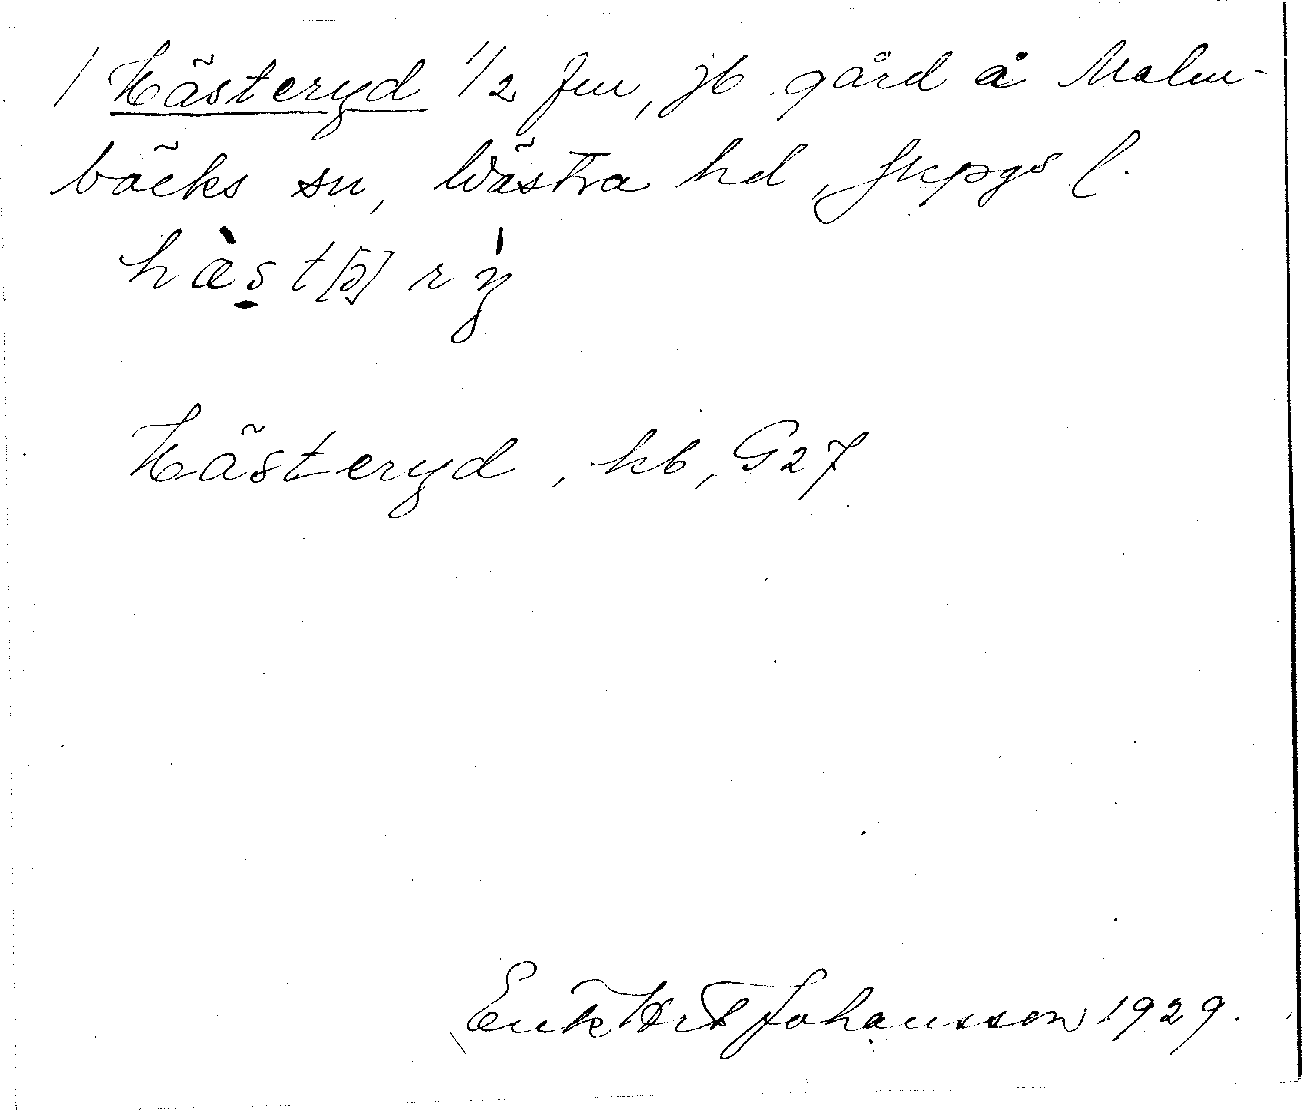 1 Hästeryd 1/2 fm, jb. gård å Malm-
bäcks sn, Västra hd, Jkpgs l.
hàst[ə] rý
Hästeryd, kb, G27
Johansson 1929.